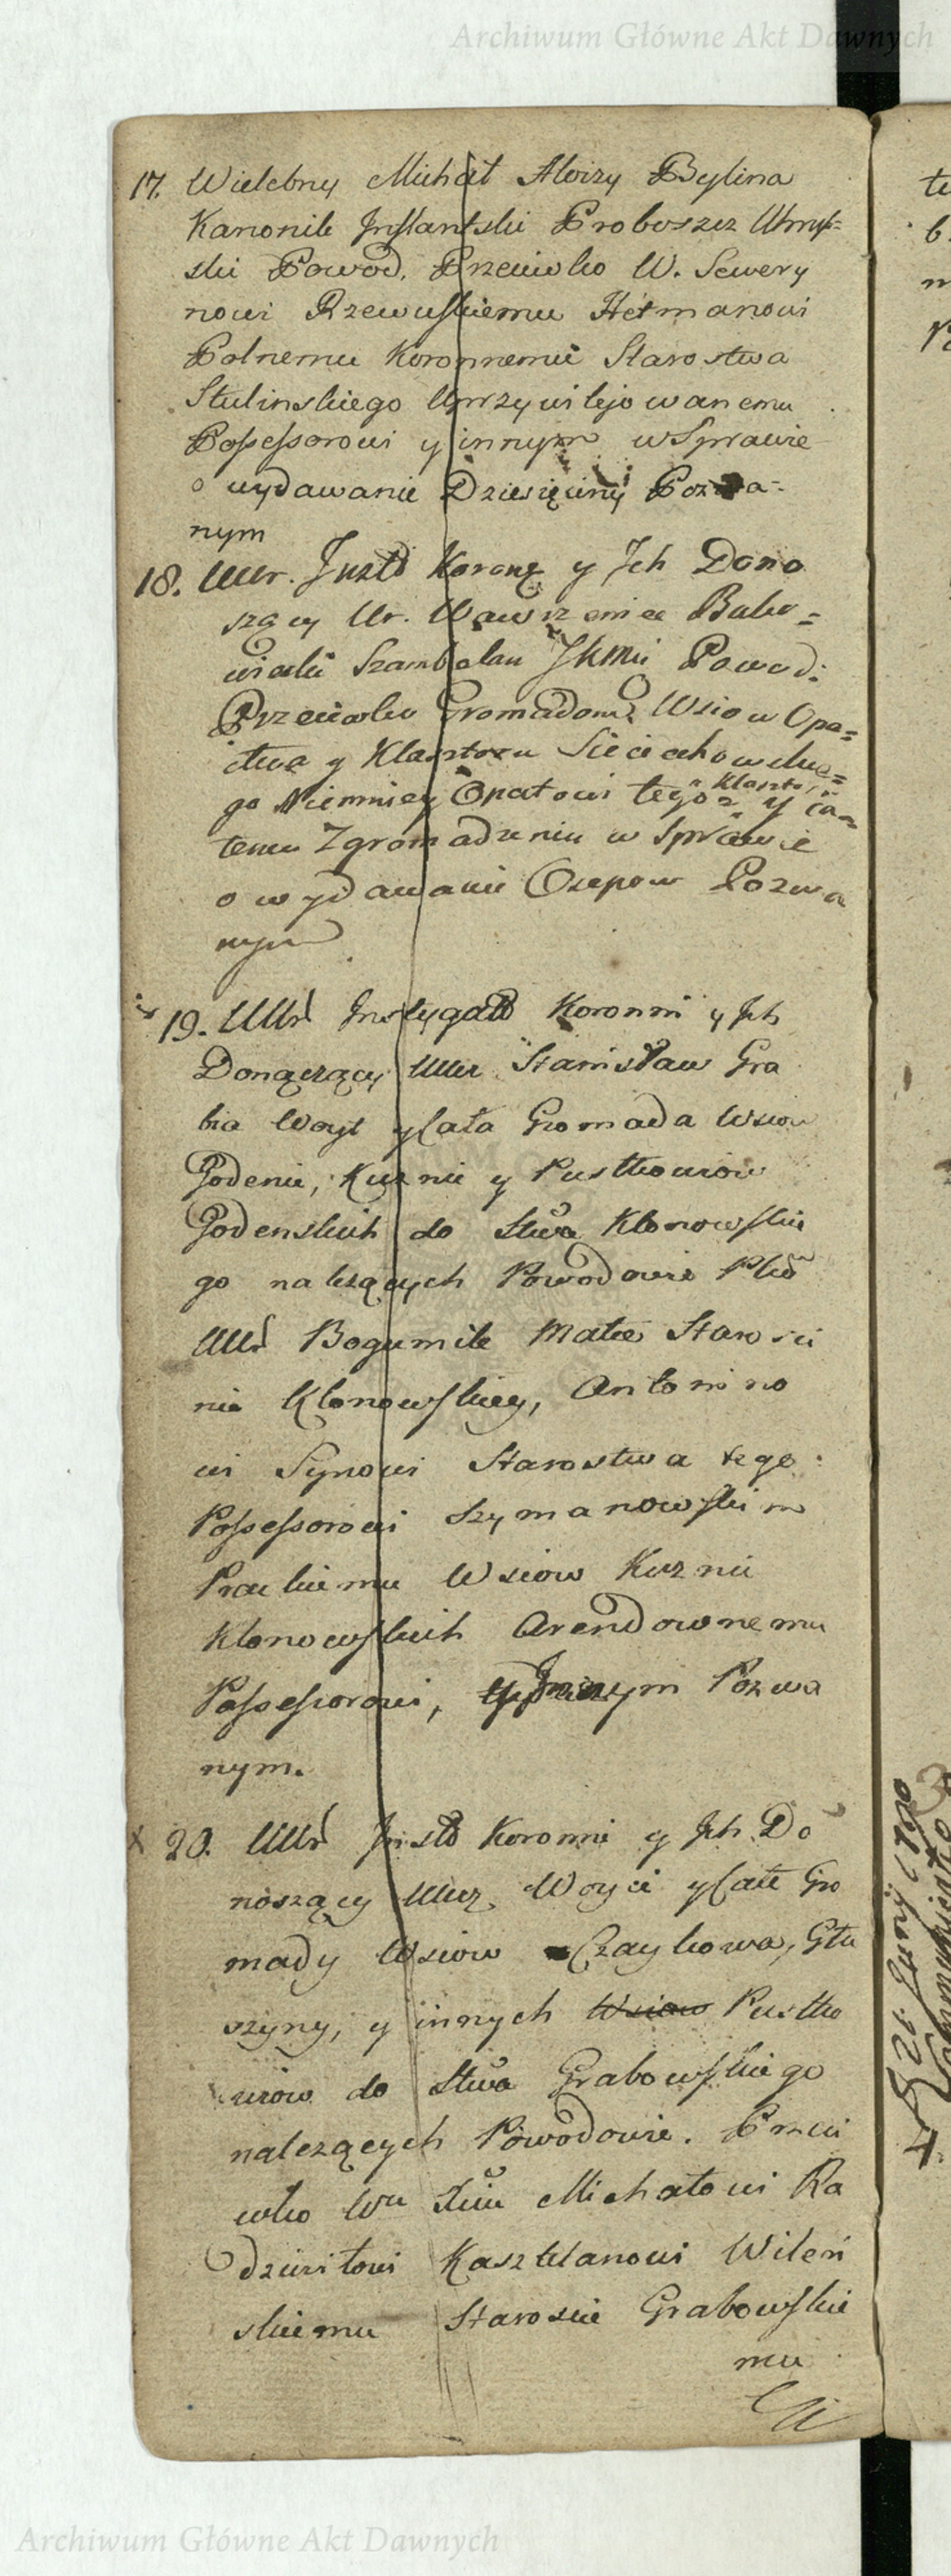 Archiwum Główne Akt Dawnych
17. Wielebny Michał Aloizy Bylina
Kanonik Inflantski Proboszcz
ski Powod. Przeciwko W. Sewery
nowi Rzewuskiemu Hetmanowi
Polnemu Koronnemu Starostwa
Stulinskiego Uprzywilejowanemu
Possessorowi y innym w Sprawie
o wydawanie Dziesięciny Pozwa=
nym
18. Uur. Insttō Koronę y Ich Dono
szący Ur. Wawrzeniec Buko=
wiecki Szambelan JKMci Powod:
Przeciwko Gromadom Wsiow Opa=
ctwa y Klasztoru Sieciechowskie=
go Niemniey Opatowi tegoż Klaszto: y ca=
łemu Zgromadzeniu w Sprawie
o wydawanie Osepow Pozwa
nym
19. UUr Instygatō Koronni y Ich
Donąszący Uur Stanisław Gra
bia Woyt y Cała Gromada Wsiow
Godenie, Kuznie y Pustkowiow
Godenskich do Stwa Klonowskie
go należących Powodowie Plko
UUr Bogumile Matce Starości
nie Klonowskiey, Antonino
wi Synowi Starostwa tego
Possessorowi Szymanowskim
Prackiemu Wsiow Kuznii
Klonowskich Arendownemu
Possessorowi, y Innym Pozwa
nym.
x 20. UUr Instō Koronni y Ich Do
noszący Uur Woyci y Całe Gro
mady Wsiow Czaykowa, Głu
szyny, y innych Wsiow Pustko
wiow do Stwa Grabowskiego
należących Powodowie. Przeci
wko Wu Xciu Michałowi Ra
dziwiłowi Kasztelanowi Wileń
skiemu Staroscie Grabowskie
mu
Archiwum Główne Akt Dawnych